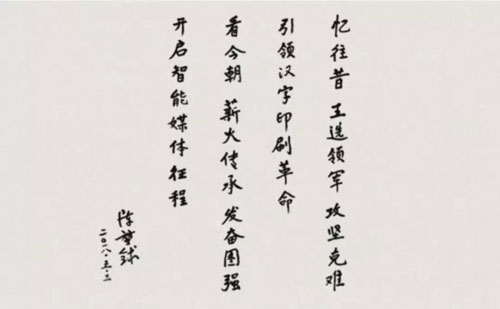 忆往昔 王选领军 攻坚克难
引领汉字印刷革命
看今朝 薪火传承 发奋图强
开启智能媒体征程
陈堃銶
二〇一八.五.二